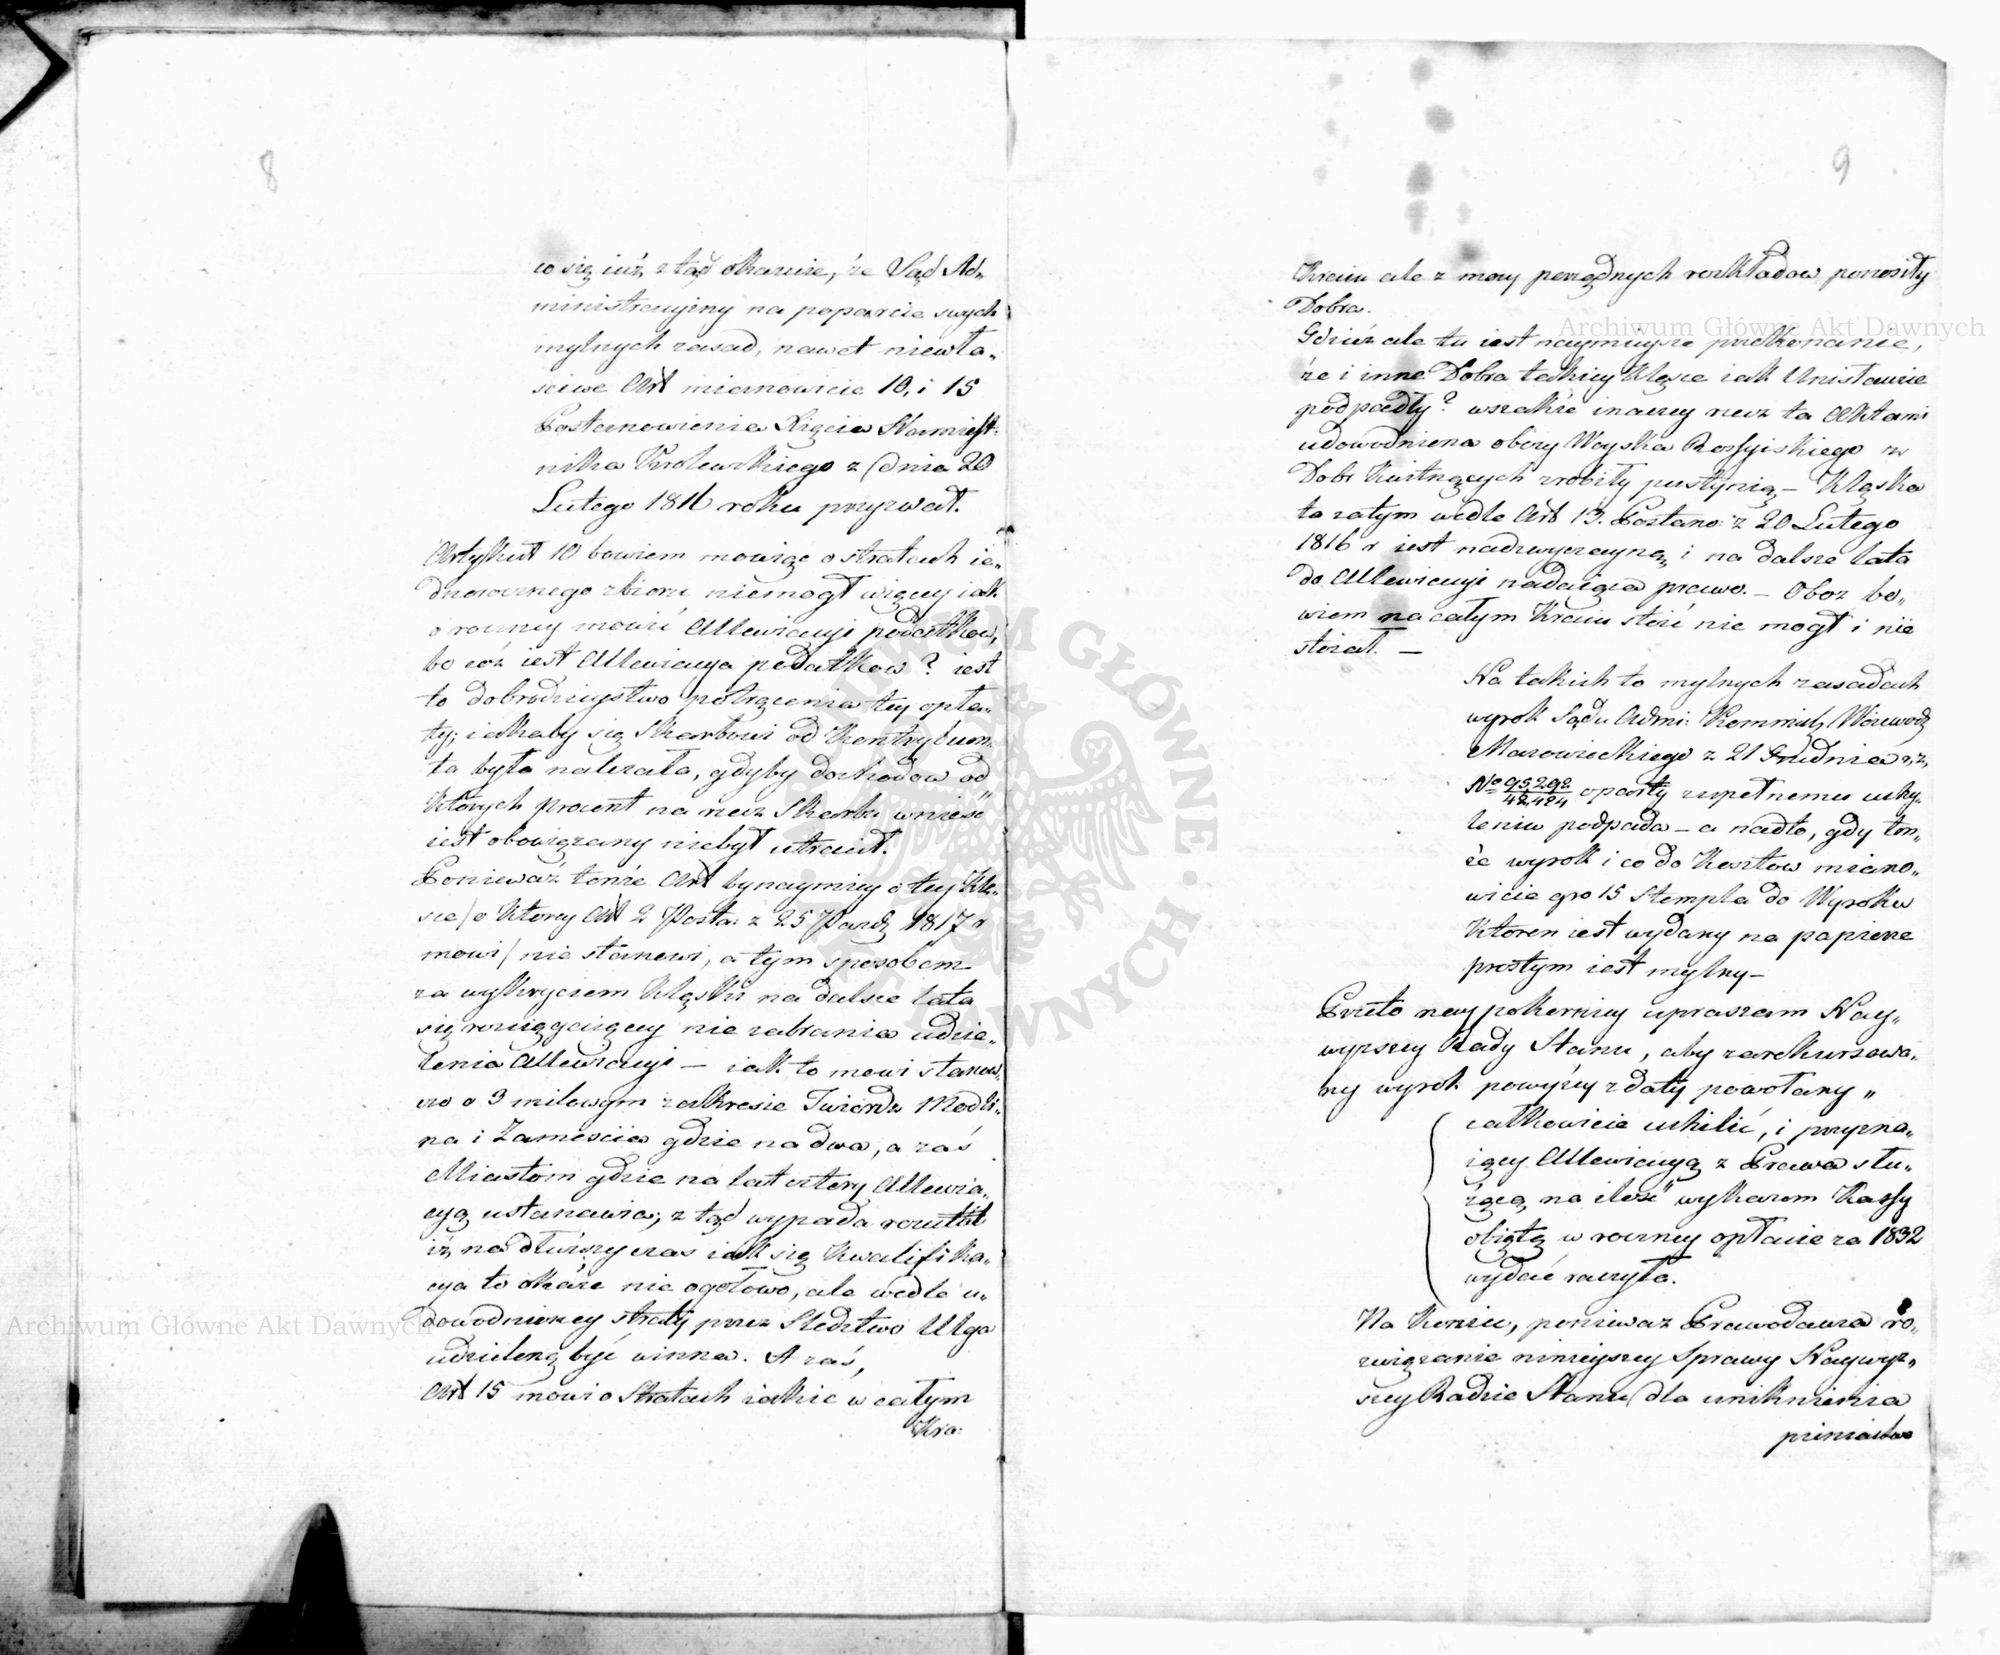 8
co się iuż z tąd okazuie, że Sąd Ad„
ministracyiny na poparcie swych
mylnych zasad, nawet niewła„
sciwe Art mianowicie 10, i 15
Postanowienia Xięcia Namiest„
nika Krolewskiego z dnia 20
Lutego 1816 roku przyzwał.
Artykuł 10 bowiem mowiąc o stratach ie„
dnorocznego zbioru niemogł więcey iak
o roczney mowić Allewiacyi podatkow,
bo cóż iest Allewiacya podatkow? iest
to dobrodzieystwo potrącenia tey opła„
ty; iakaby się Skarbowi od Kontrybuen„
ta była należała, gdyby dochodow od
których procent na rzecz Skarbu wnieść
iest obowiązany niebył utracił.
Ponieważ tenże Art bynaymniey o tey Klę„
sce/o ktorey Art 2 Posta: z 25 Paźdz 1817 r
mowi/ nie stanowi, a tym sposobem
za wykryciem Klęski na dalsze lata
się rozciągaiącey nie zabrania udzie„
lenia Allewiacyi — iak to mowi stanow„
czo o 3 milowym zakresie Twierdz Modli„
na i Zamościa gdzie na dwa, a zaś
Miastom gdzie na lat cztery Allewia„
cyą ustanawia; z tąd wypada
iż na dłuższy czas iak się Kwalifika„
cya to okáże nie ogołowo, ale wedle u„
dowodnioney straty przez Sledztwo Ulga
udzieloną być winna. A zaś,
Art 15 mowi o Stratach iakie w całym
Kra:
9
Kraiu ale z mocy porządnych rozkładow ponosiły
Dobra.
Gdzież ale tu iest naymnieysze przekonanie,
że i inne Dobra takiey Klęsce iak Unisławice
podpadły? wszakże inaczey rzecz ta Aktami
udowodniona obozy Woyska Rossyiskiego z
Dobr Kwitnących zrobiły pustynią — Klęska
ta zatym wedle Art 13. Postano: z 20 Lutego
1816 r iest nadzwyczayną, i na dalsze lata
do Allewiacyi nadaiąca prawo. — Oboz bo„
wiem na całym Kraiu stóić nie mogł i nie
stoiał. —
Na takich to mylnych zasadach
wyrok Sądu Admi: Kommiss, Woiewodz
Mazowieckiego z 21 Grudnia r, z,
No 95292/42,484 oparty zupełnemu uchy„
leniu podpada — a nadto, gdy ten„
że wyrok i co do Kosztow miano„
wicie gro 15 Stempla do Wyroku
Ktoren iest wydany na papierze
prostym iest mylny —
Przeto naypokorniey upraszam Nay„
wyższey Rady Stanu, aby zarekursowa„
ny wyrok powyżey z daty powołany „
całkowicie uchilić, i przyzna„
iącey Allewiacyą z Prawa słu„
żącą na ilość wykazem Kassy
obiętą w roczney opłacie za 1832
wydać raczyła.
Na Koniec, ponieważ Prawodawca ro„
związanie ninieyszey Sprawy Naywyż„
szey Radzie Stanu, dla uniknienia
pieniactwa
Archiwum Główne Akt Dawnych
Archiwum Główne Akt Dawnych
ARCHIWUM GŁÓWNE AKT DAWNYCH